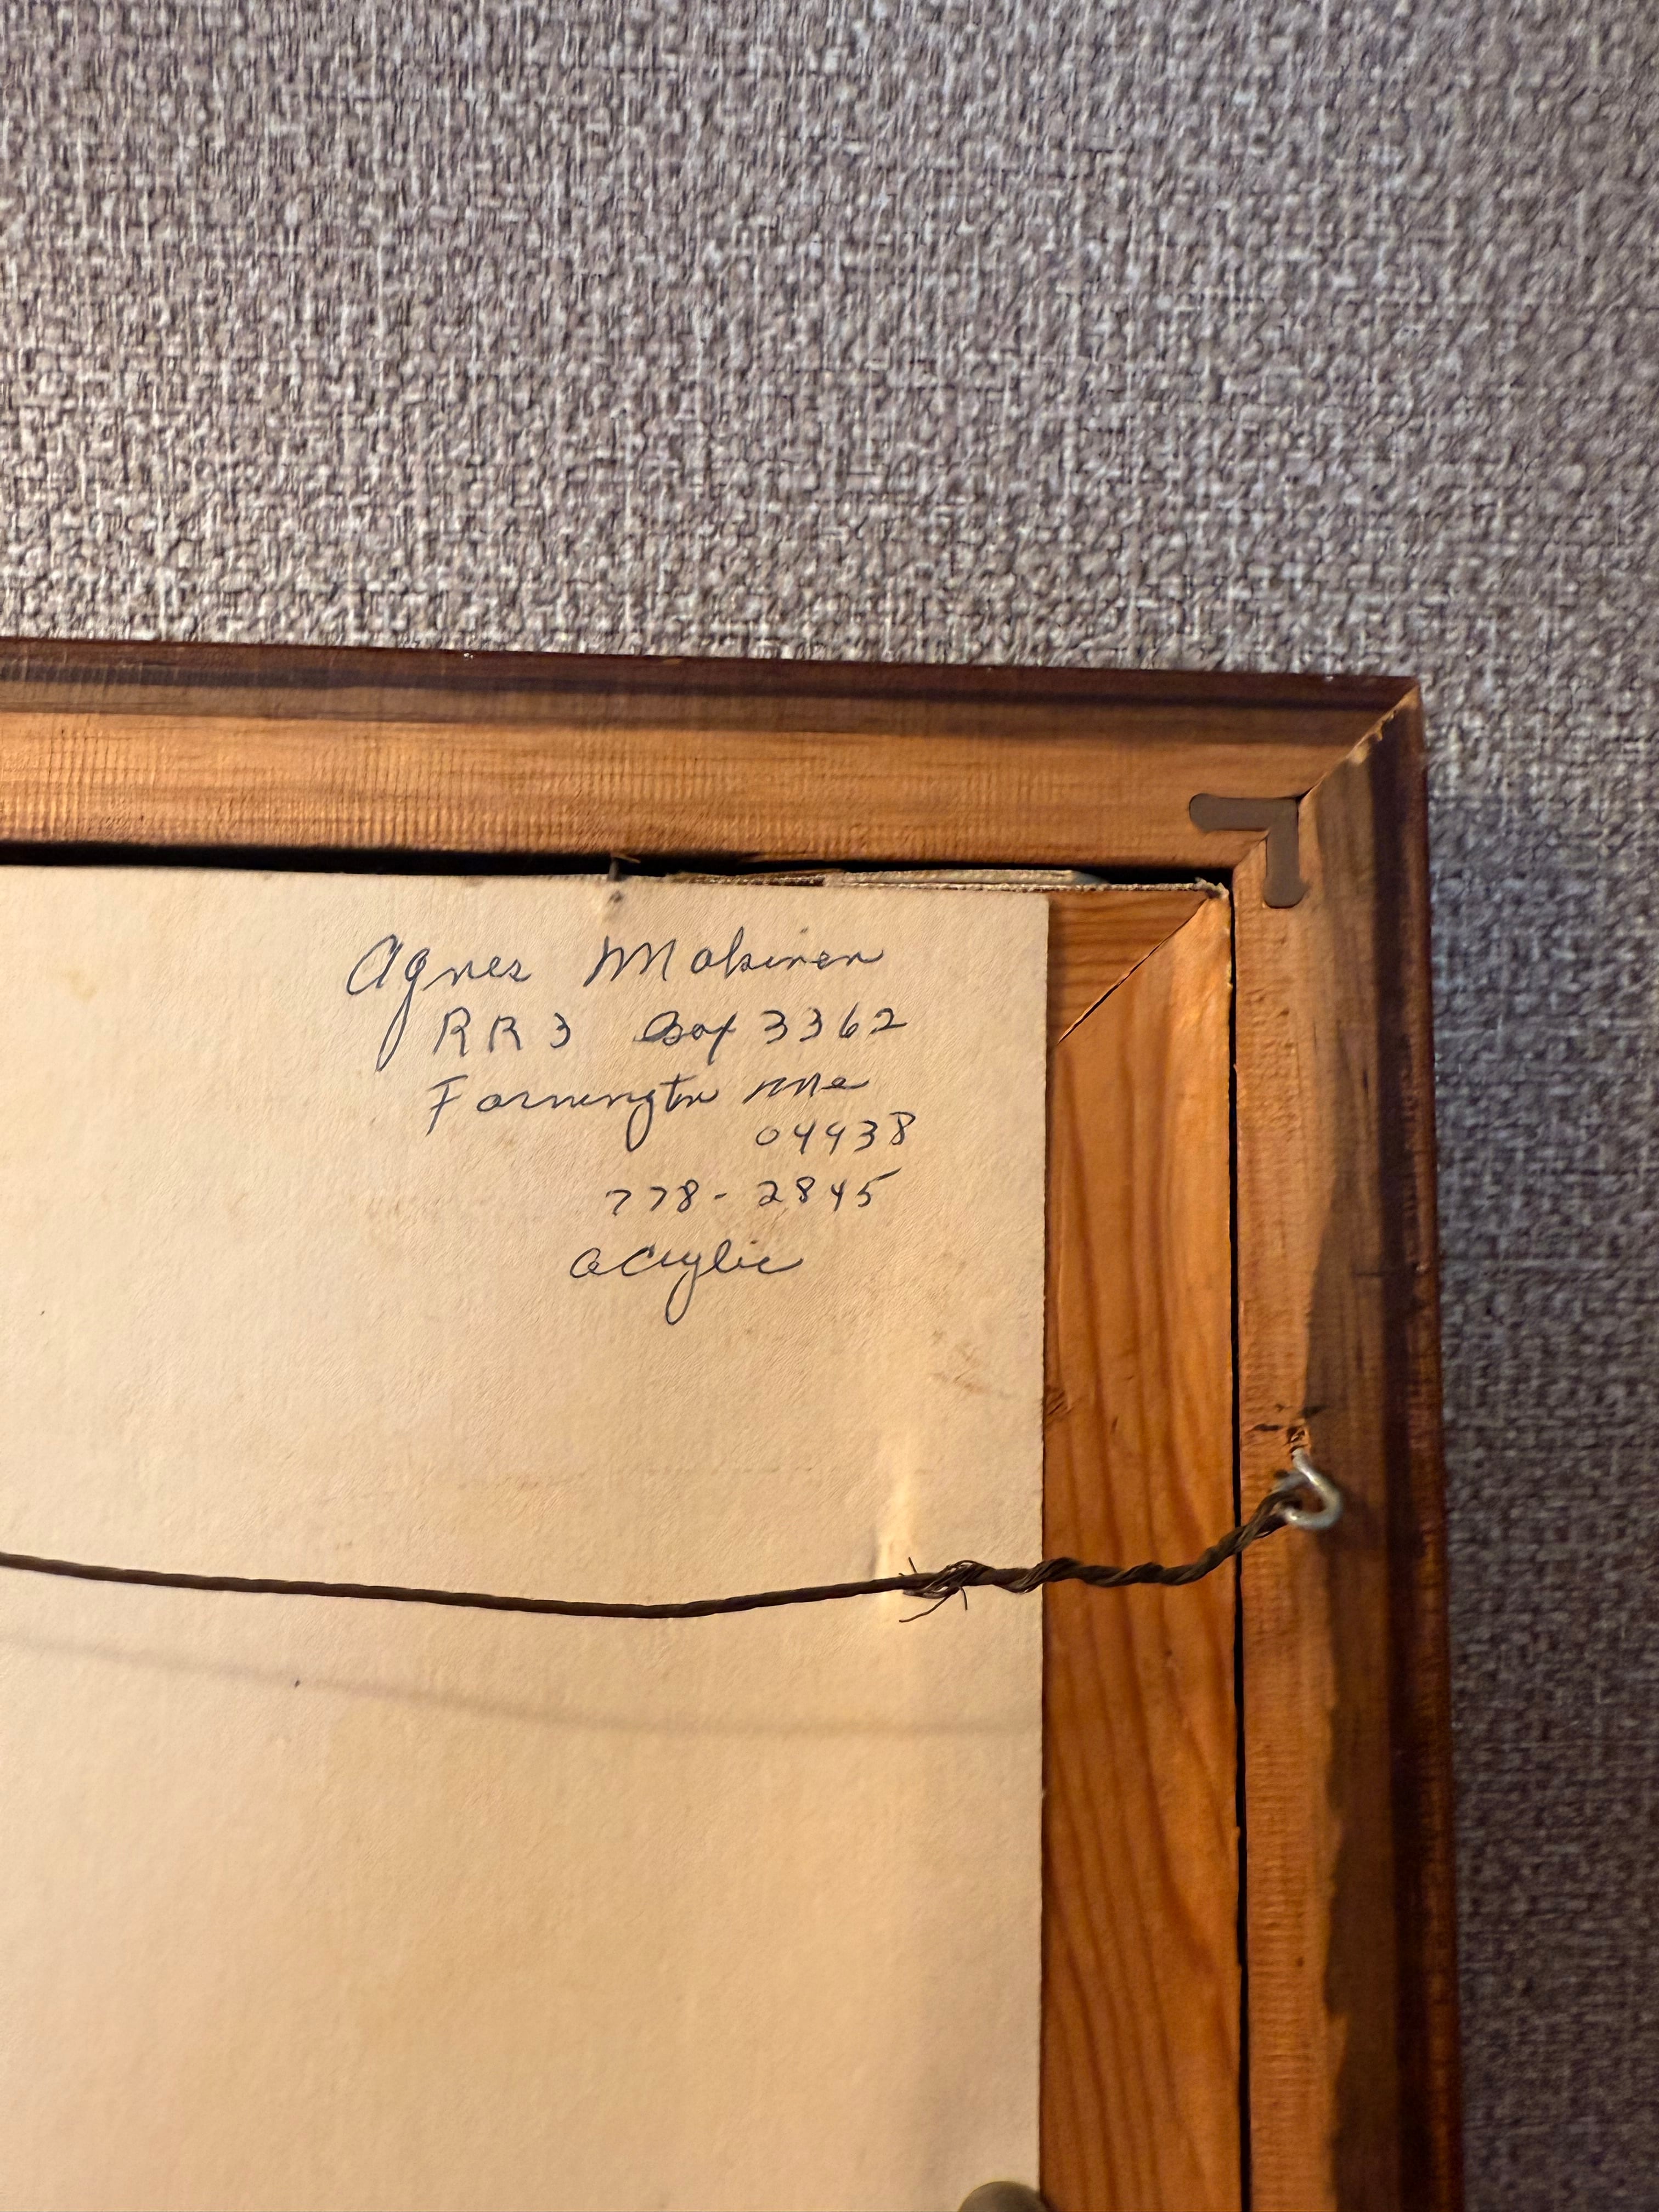 Agnes Makinen
RR3 Box 3362
Farmington Me
04938
778-2845
acrylic